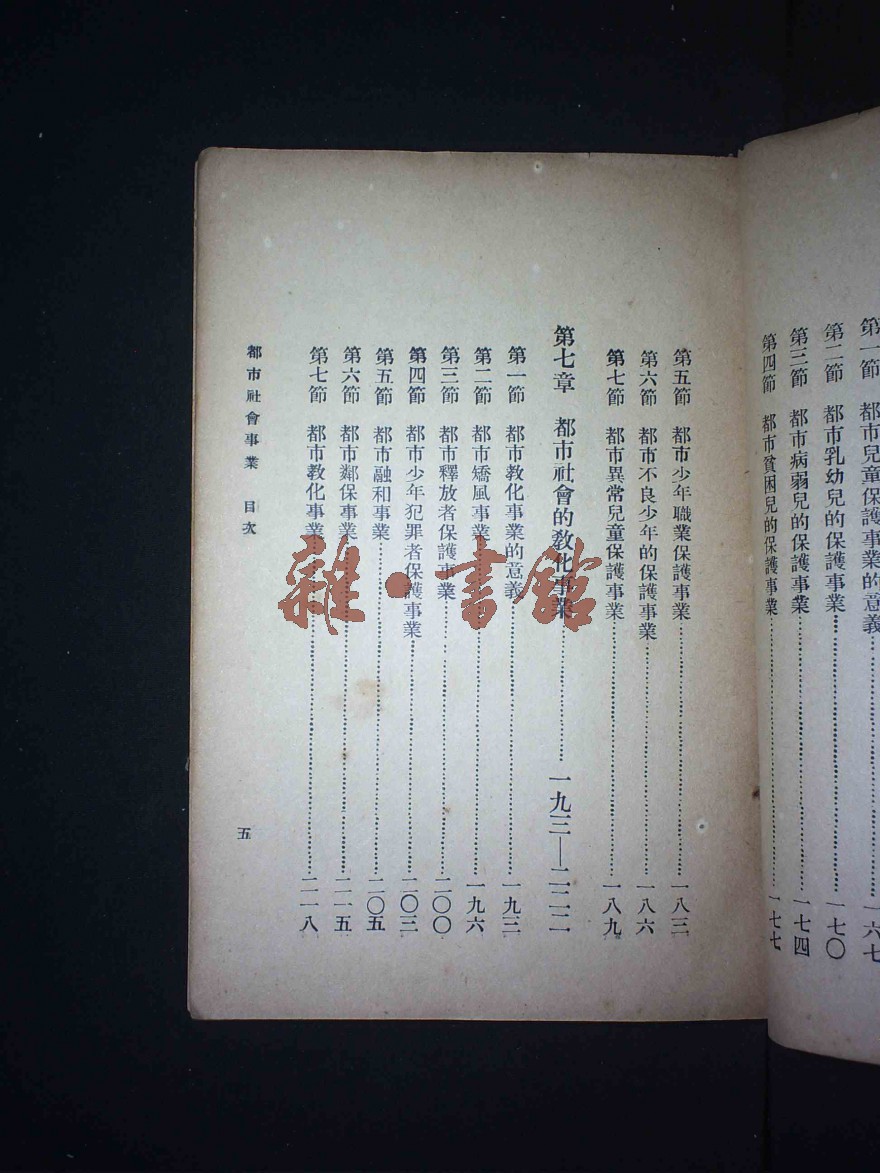 第一節 都市兒童保護事業的意義……一六七
第二節 都市乳幼兒的保護事業……一七〇
第三節 都市病弱兒的保護事業……一七四
第四節 都市貧困兒的保護事業……一七七
第五節 都市少年職業保護事業……一八三
第六節 都市不良少年的保護事業……一八六
第七節 都市異常兒童保護事業……一八九
第七章 都市社會的教化事業……一九三—二二二
第一節 都市教化事業的意義……一九三
第二節 都市矯風事業……一九六
第三節 都市釋放者保護事業……二〇〇
第四節 都市少年犯罪者保護事業……二〇三
第五節 都市融和事業……二〇五
第六節 都市鄰保事業……二一五
第七節 都市教化事業……二一八
都市社會事業 目次
五
雜·書館